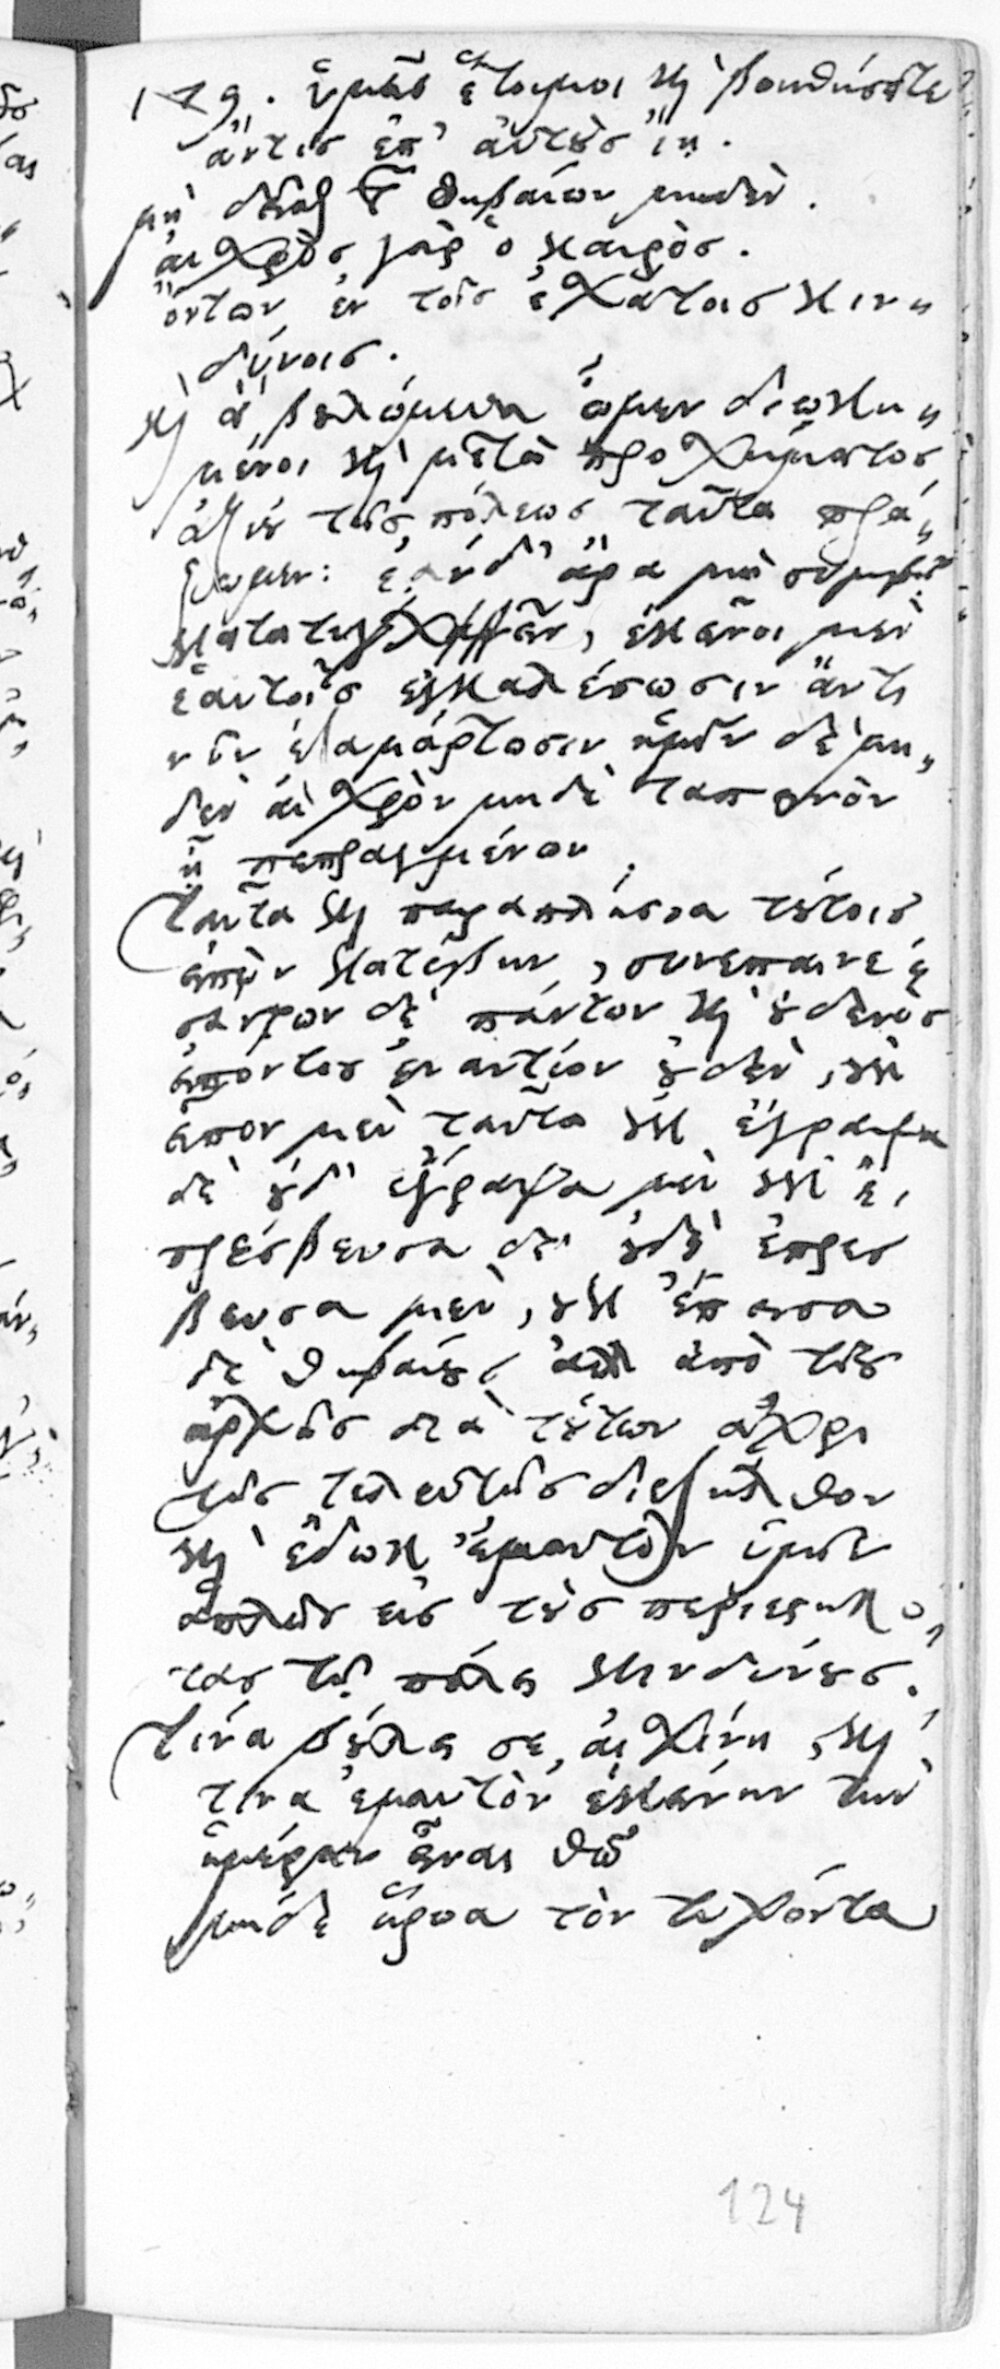 179. ὑμεῖς ἕτοιμοι καὶ βοηθήσετε
ἄν τις ἐπ' αὐτοὺς ἴῃ.
μὴ δεῖσθαι τῶν Θηβαίων μηδὲν.
αἰσχρὸς γὰρ ὁ καιρὸς.
ὄντων ἐν τοῖς ἐσχάτοις κιν„
δύνοις.
καὶ ἃ βουλόμεθα ὦμεν διῳκη„
μένοι καὶ μετὰ προσχήματος
ἀξίου τῆς πόλεως ταῦτα πρά„
ξωμεν: ἐάν δ' ἄρα μὴ συμβῇ
κατατυχεῖν, ἐκεῖνοι μὲν
ἑαυτοῖς ἐγκαλέσωσιν ἄν τι
νῦν ἐξαμάρτωσιν ἡμῖν δὲ μη„
δὲν αἰσχρὸν μηδὲ ταπεινὸν
ᾖ πεπραγμένον.
Ταῦτα καὶ παραπλήσια τούτοις
εἰπὼν κατέβην, συνεπαινε
σάντων δὲ πάντων καὶ οὐδενὸς
εἰπόντος ἐναντίον οὐδὲν, οὐκ
εἶπον μὲν ταῦτα οὐκ ἔγραψα
δὲ οὐδ' ἔγραψα μὲν οὐκ ἐ,
πρέσβευσα δὲ οὐδὲ ἐπρεσ
βευσα μὲν, οὐκ ἔπεισα
δὲ Θηβαίους, ἀλλ ἀπὸ τῆς
ἀρχῆς διὰ τούτων ἄχρι
τῆς τελευτῆς διεξῆλθον
καὶ ἔδωκ' ἐμαυτὸν ὑμῖν
ἁπλῶς εἰς τοὺς περιεστηκό„
τας τῇ πόλει κινδύνους.
Τίνα βούλει σε, αἰσχίνη, καὶ
τίνα ἐμαυτὸν ἐκείνην τὴν
ἡμέραν εἶναι θῶ
μηδὲ ἥρωα τὸν τυχόντα
124